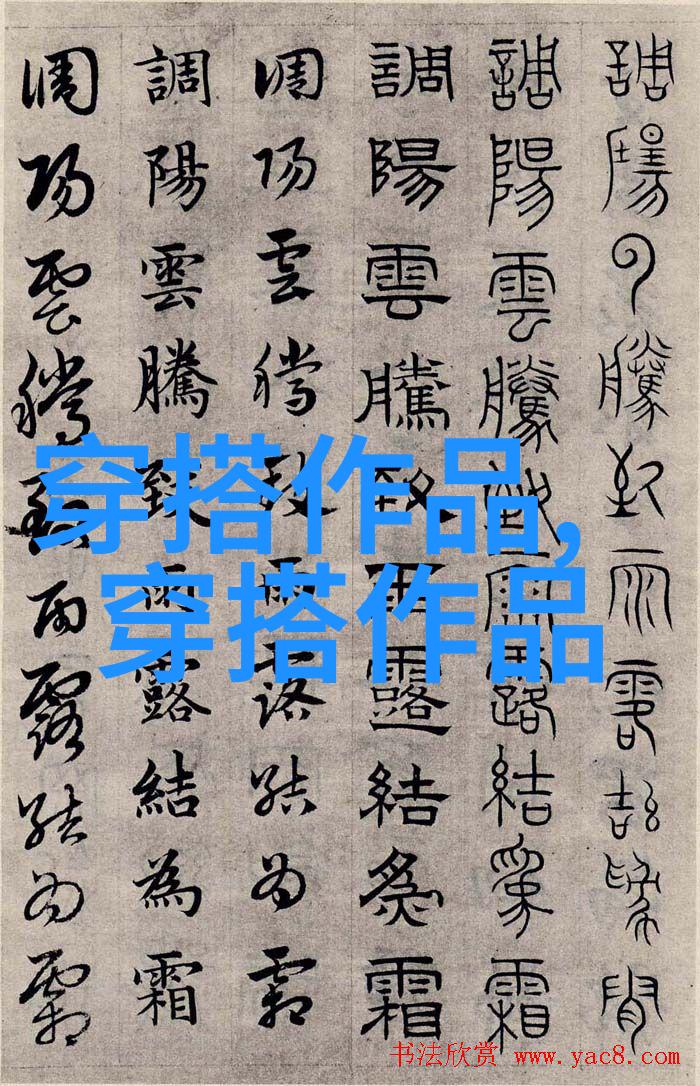 調陽雲騰致雨露結為霜
調陽雲騰致雨露結為霜
調陽雲騰致雨露結為霜
調陽雲騰致雨露結為霜
調陽雲騰致雨露結為霜
調陽雲騰致雨露結為霜
穿搭作品,
穿搭作品
书法欣赏 www.yac8.com